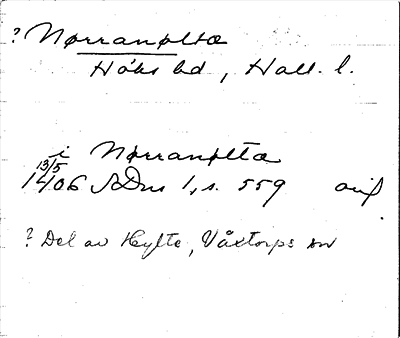 ? Nørranølta
Höks hd, Hall. l.
i Nørranølta
13/5
1406 SDns 1, s. 559 avs.
? Del av Hylte, Våxtorps sn